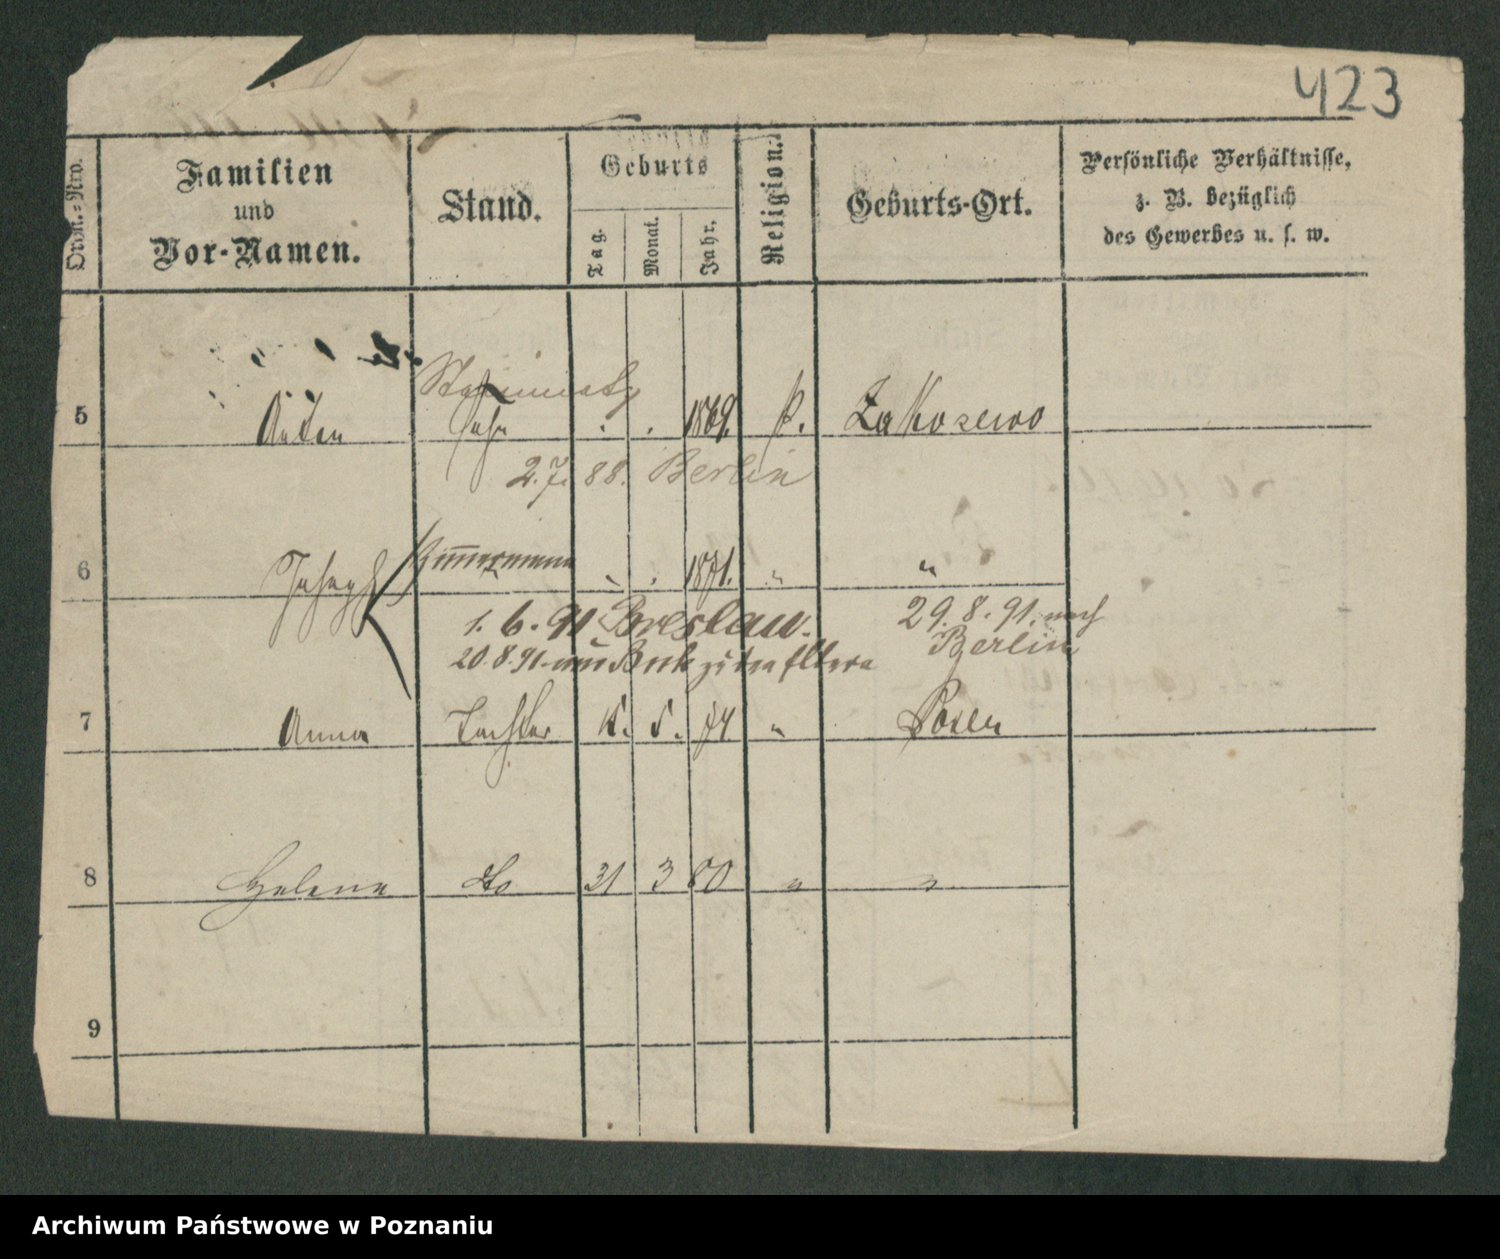 423
Ordn.-Nro.
Familien
und
Vor-Namen.
Stand.
Geburts
Tag.
Monat.
Jahr.
Religion.
Geburts-Ort.
Persönliche Verhältnisse,
z. B. bezüglich
des Gewerbes u. s. w.
5 Anton Sohn . . 1869. k. Zakozewo
2.7. 88. Berlin
6 Joseph Zimmermann " . . 1871. " "
1. 6. 91 Breslau.
29. 8. 91. nach
Berlin
20.8.91. Buk zu den Eltern
7 Anna Tochter 15. 5. 74 " Posen
8 Helene do 31 3 80 " "
9
Archiwum Państwowe w Poznaniu